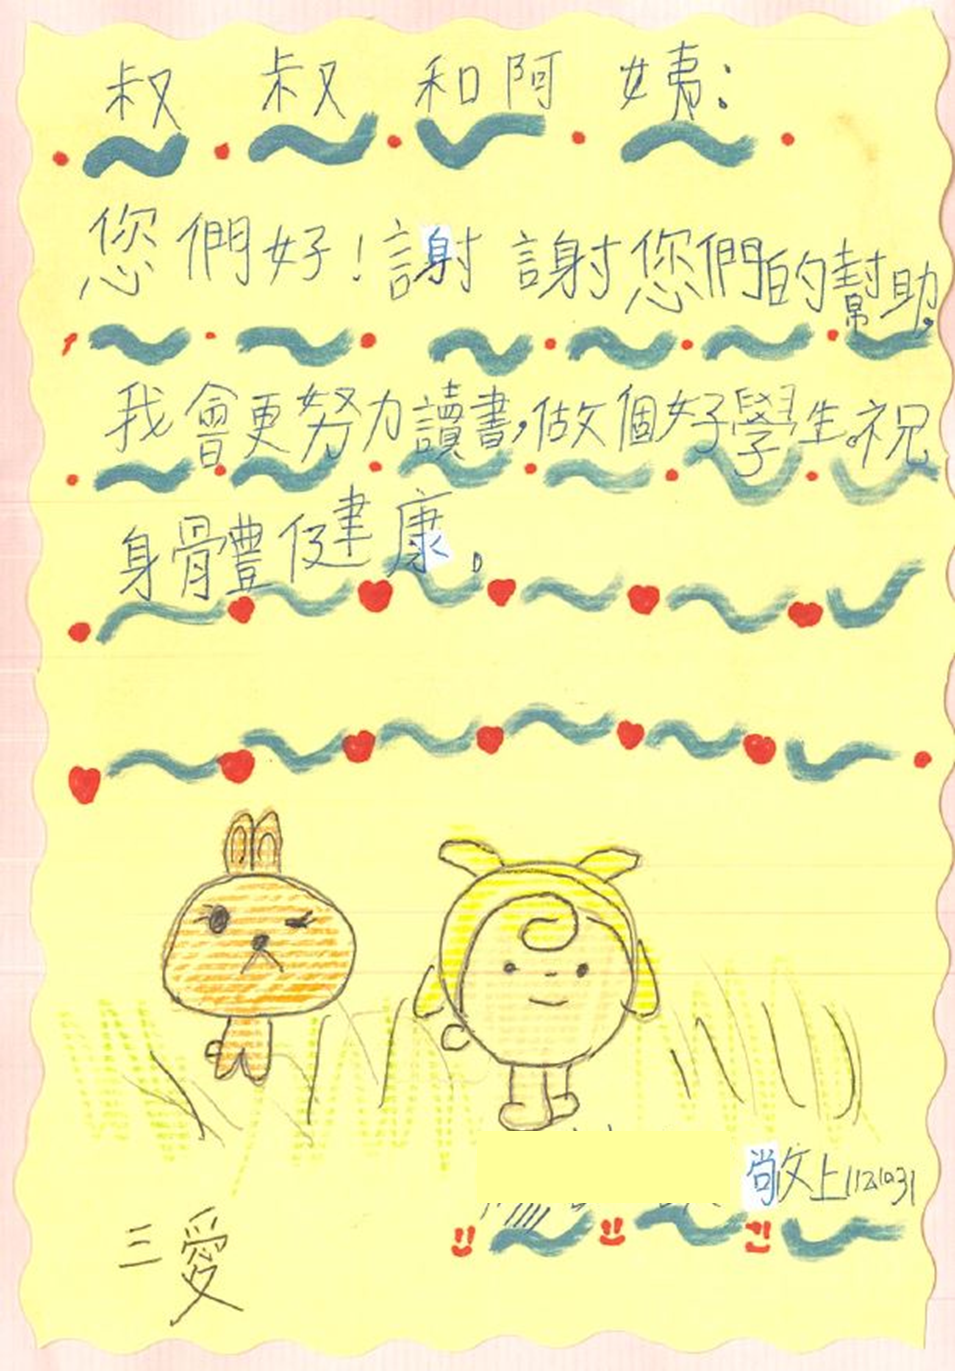 叔叔和阿姨：
您們好！謝謝您們的幫助，
我會更努力讀書，做個好學生。祝
身體健康。
敬上112.10.31
三愛